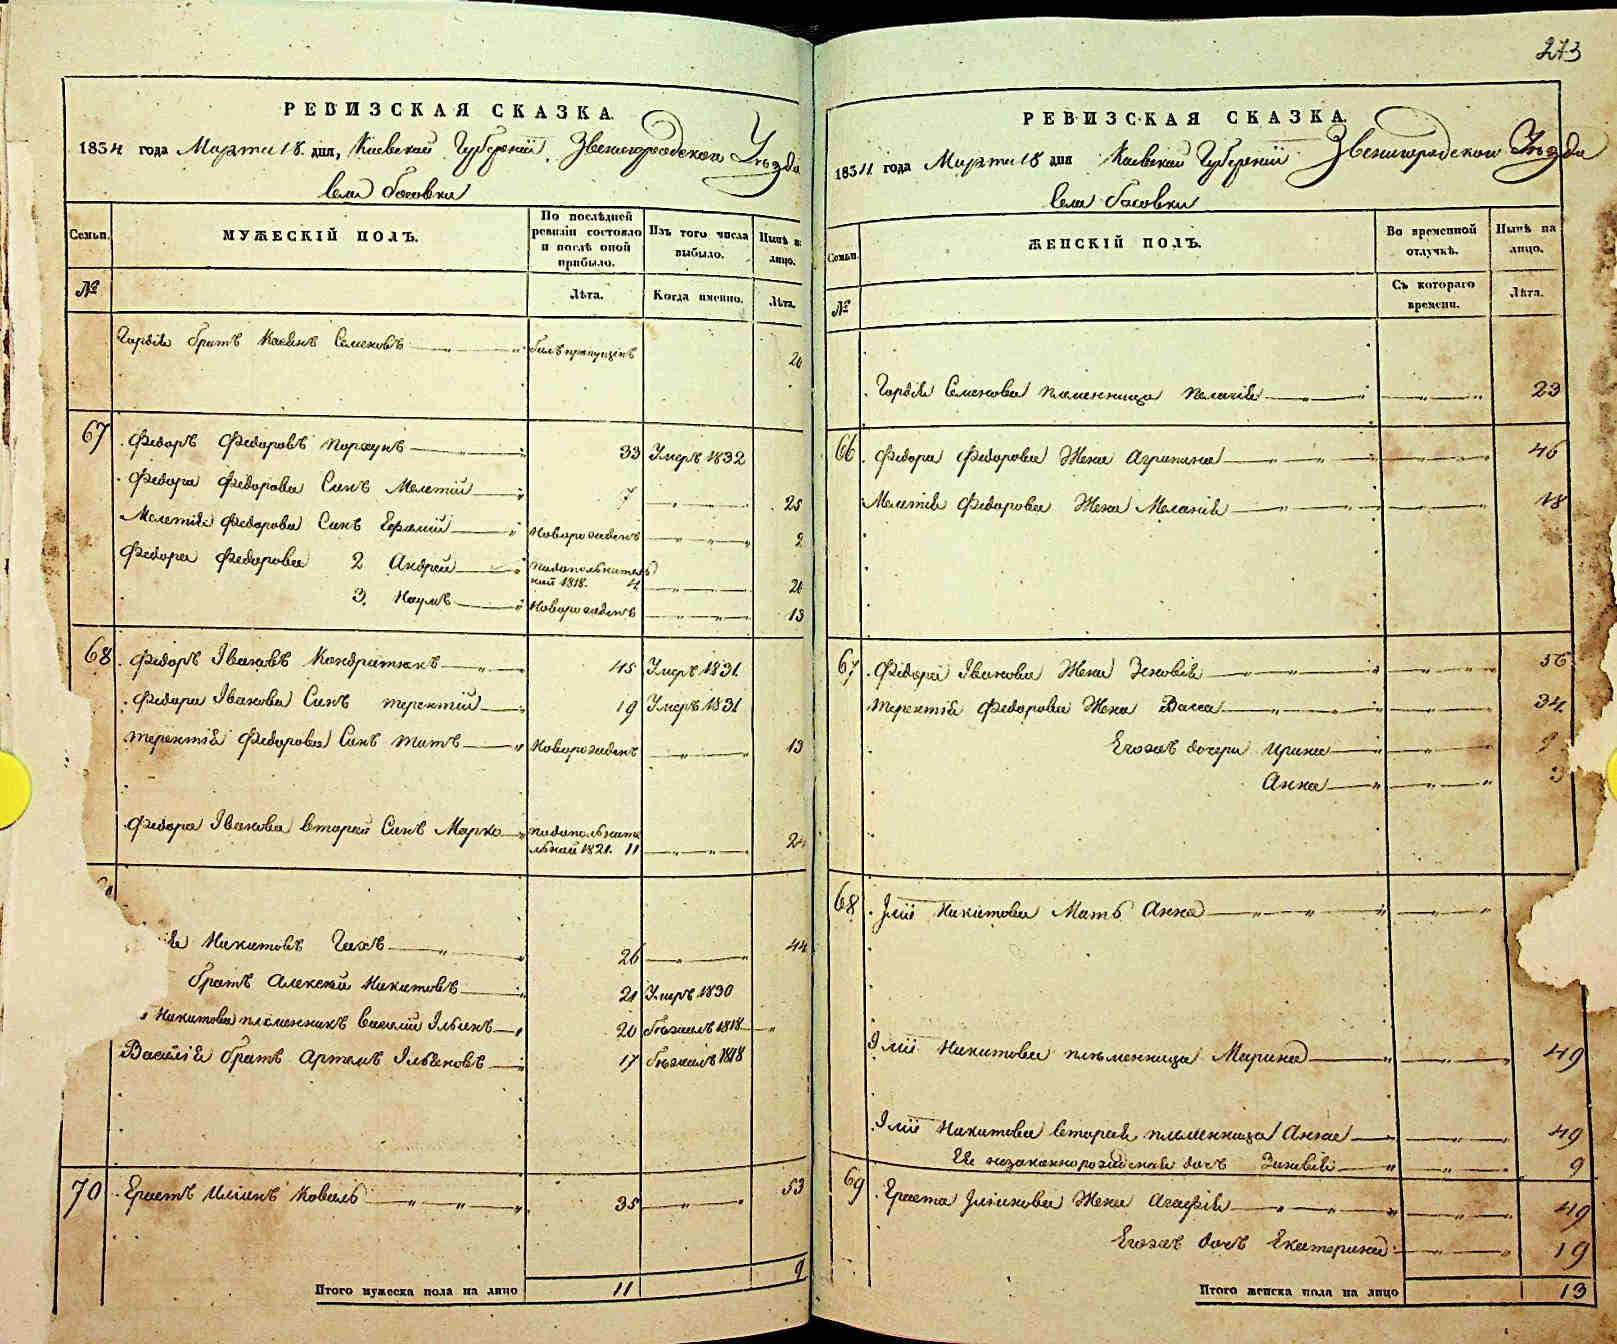 273
РЕВИЗСКАЯ СКАЗКА.
1834 года Марта 18 дня, Киевской Губернии, Звенигородского Уезда
села Босовки
Семьи.
МУЖЕСКІЙ ПОЛЪ.
По послѣдней ревизіи состояло и послѣ оной прибыло.
Изъ того числа выбыло.
Нынѣ на лицо.
№
Лѣта.
Когда именно.
Лѣта.
Гордія братъ Семеновъ 20
67 Федоръ Федоровъ 33 Умеръ 1832
Федора Федорова Сынъ Мелетій 7 25
Мелетія Федорова Сынъ новорожденъ 2
Федора Федорова 2 Андрей 1818. 4 20
3. Наумъ новорожденъ 13
68 Федоръ Івановъ Кондратюкъ 45 Умеръ 1831
Федора Іванова Сынъ Терентій 19 Умеръ 1831
Терентія Федорова Сынъ Титъ новорожденъ 13
Федора Іванова вторый Сынъ Марко 1821. 11 24
Никитовъ 26 44
братъ Алексей Никитовъ 21 Умеръ 1830
Никитова племенникъ Василий Ільинъ 20 бежалъ 1818
Василія братъ Артемъ 17 бежалъ 1818
70 Ерастъ Коваль 35 53
Итого мужеска пола на лицо 11 9
РЕВИЗСКАЯ СКАЗКА.
1834 года Марта 18 дня Киевской Губерніи Звенигородского Уезда
села Босовки
Семьи.
ЖЕНСКІЙ ПОЛЪ.
Во временной отлучкѣ.
Нынѣ на лицо.
№
Съ котораго времени.
Лѣта.
Гордія Семенова племенница Пелагія 23
66 Федора Федорова Жена Агрипина 46
Мелетія Федорова Жена Меланія 18
67 Федора Іванова Жена Зеновія 56
Терентія Федорова Жена Васса 34
Егожъ дочери Ирина 9
Анна 3
68 Никитова Мать Анна
Никитова племенница Марина 49
Никитова вторая племенница Анна 49
Ее незаконнорожденная дочь Зиновія 9
69 Ераста Жена Агафія 49
Егожъ дочь Екатерина 19
Итого женска пола на лицо 13